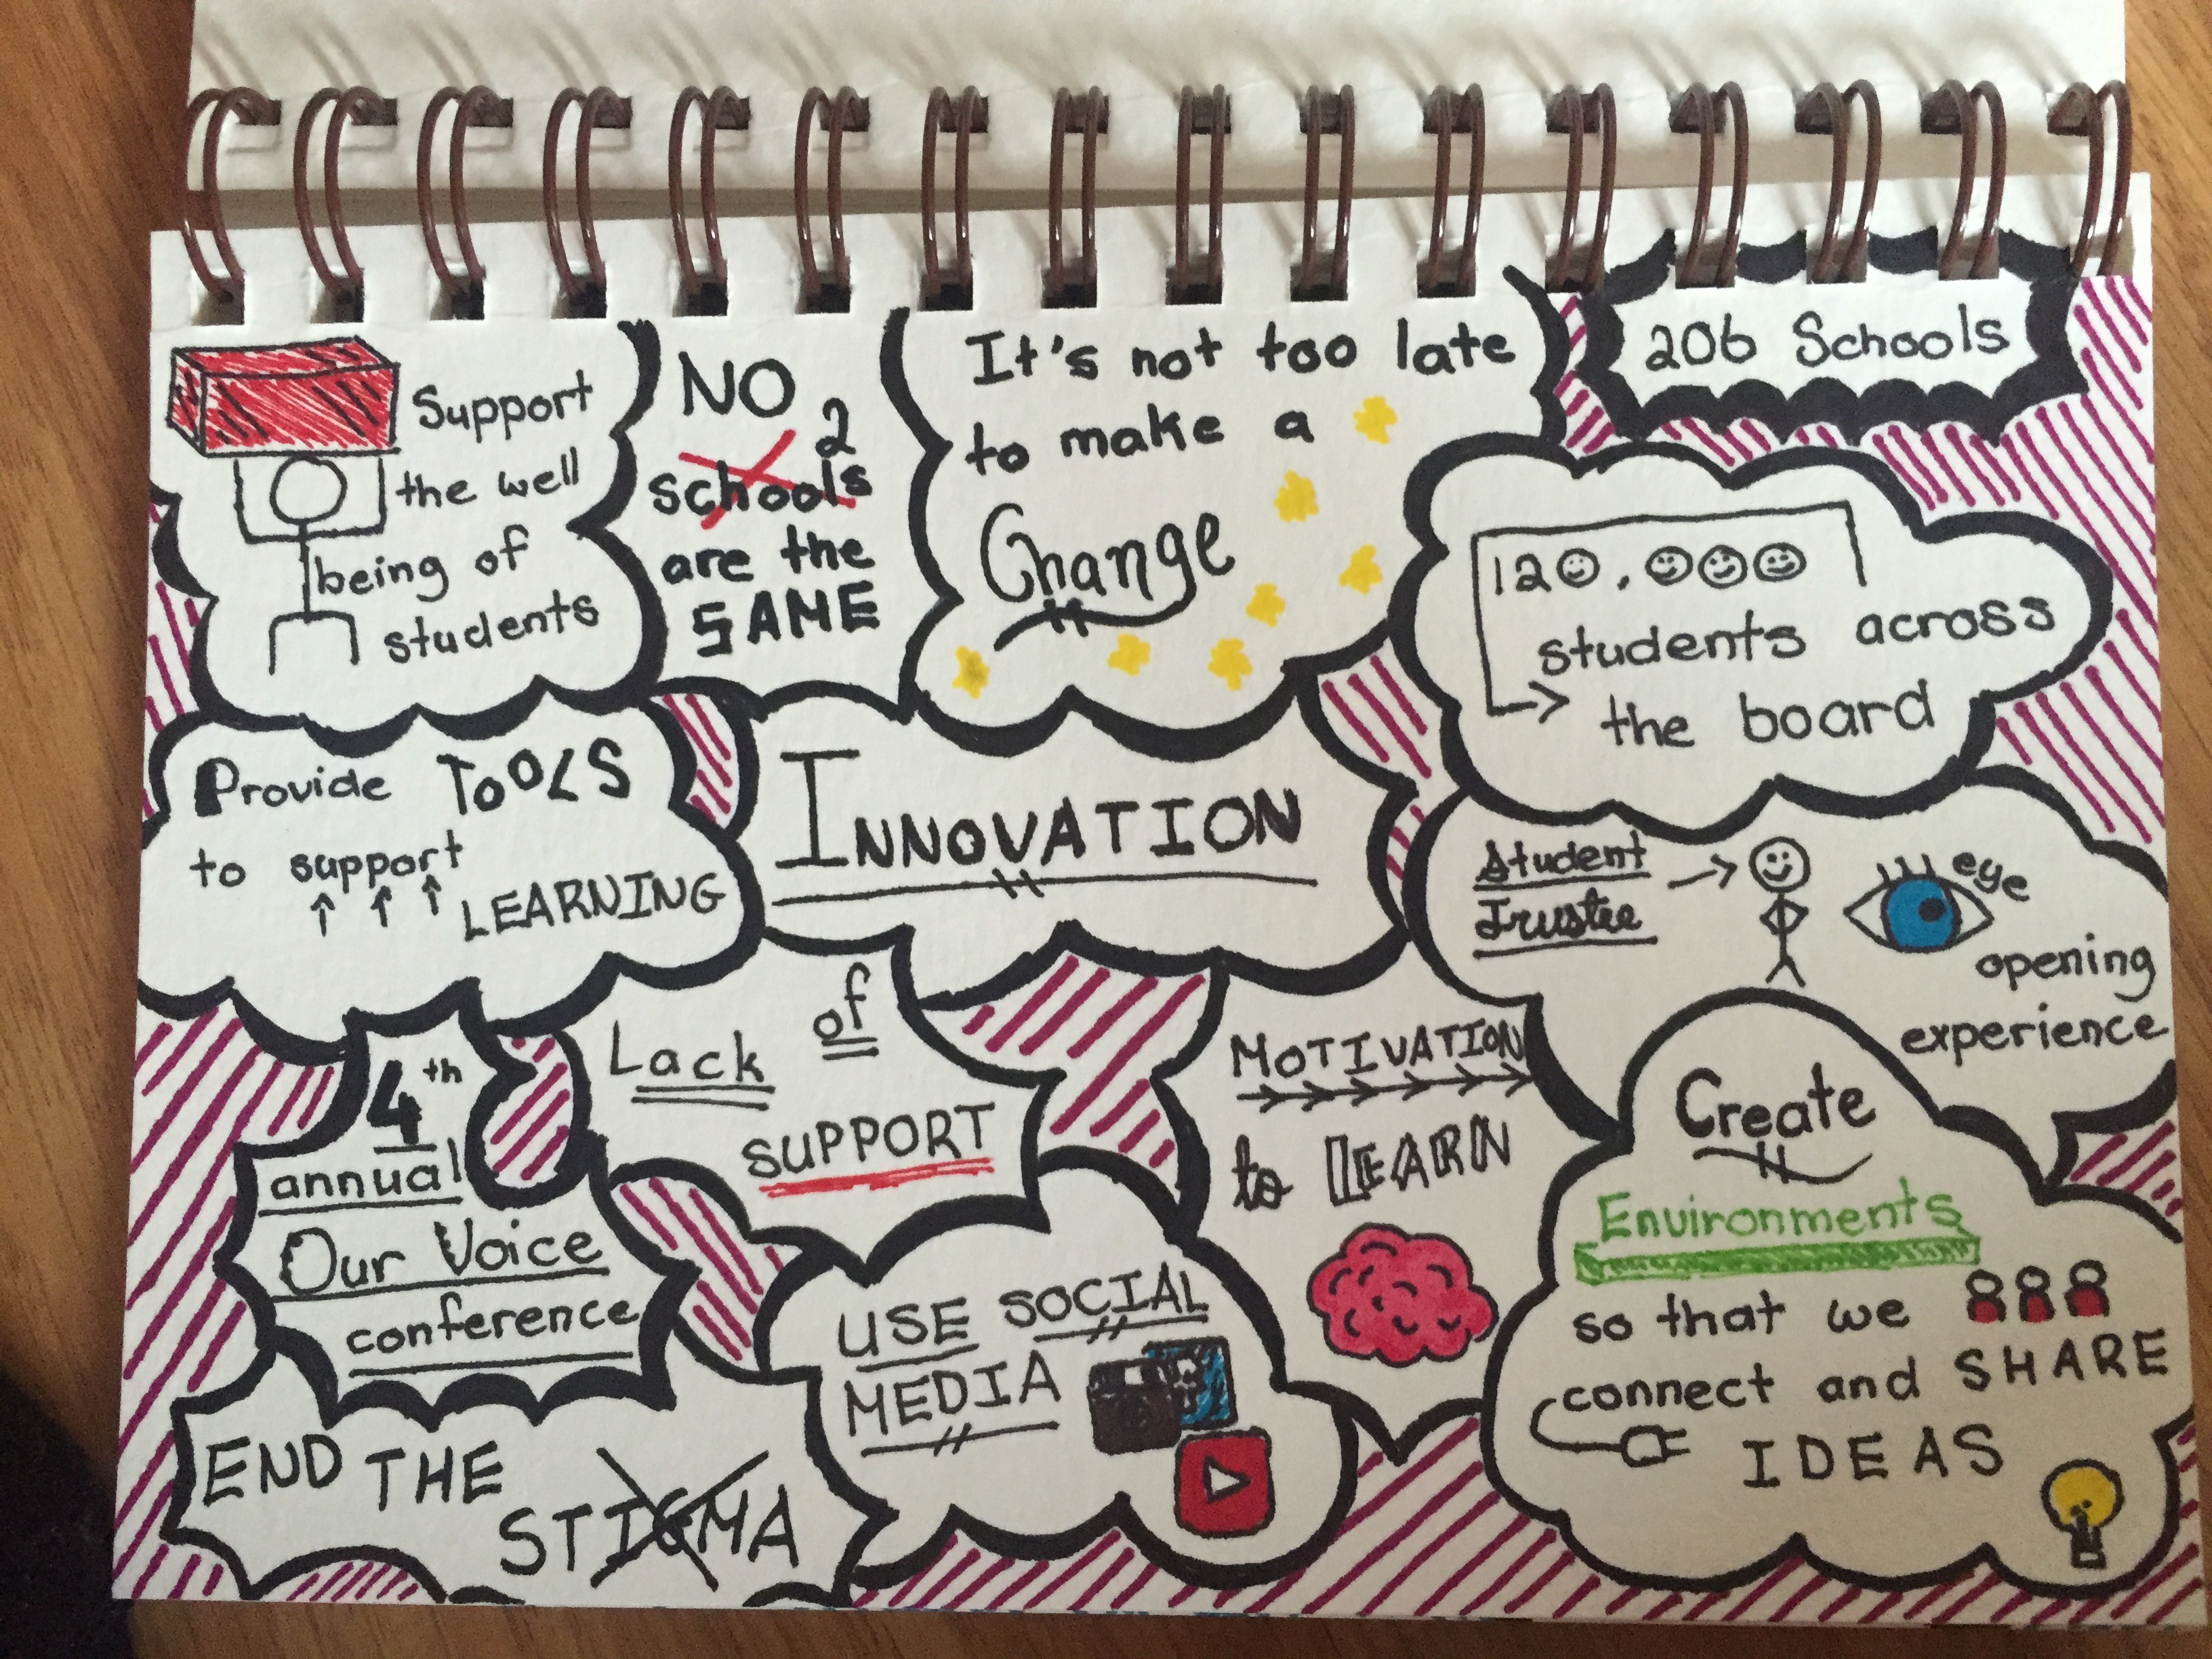 Support
the well
being of
students
NO
2
schools
are the
SAME
It's not too late
to make a
Change
206 Schools
120,000
students across
the board
Provide TOOLS
to support
LEARNING
INNOVATION
Student
Trustee
eye
opening
experience
4th
annual
Our Voice
conference
Lack of
SUPPORT
MOTIVATION
to LEARN
Create
Environments
so that we
connect and SHARE
IDEAS
USE SOCIAL
MEDIA
END THE
STIGMA